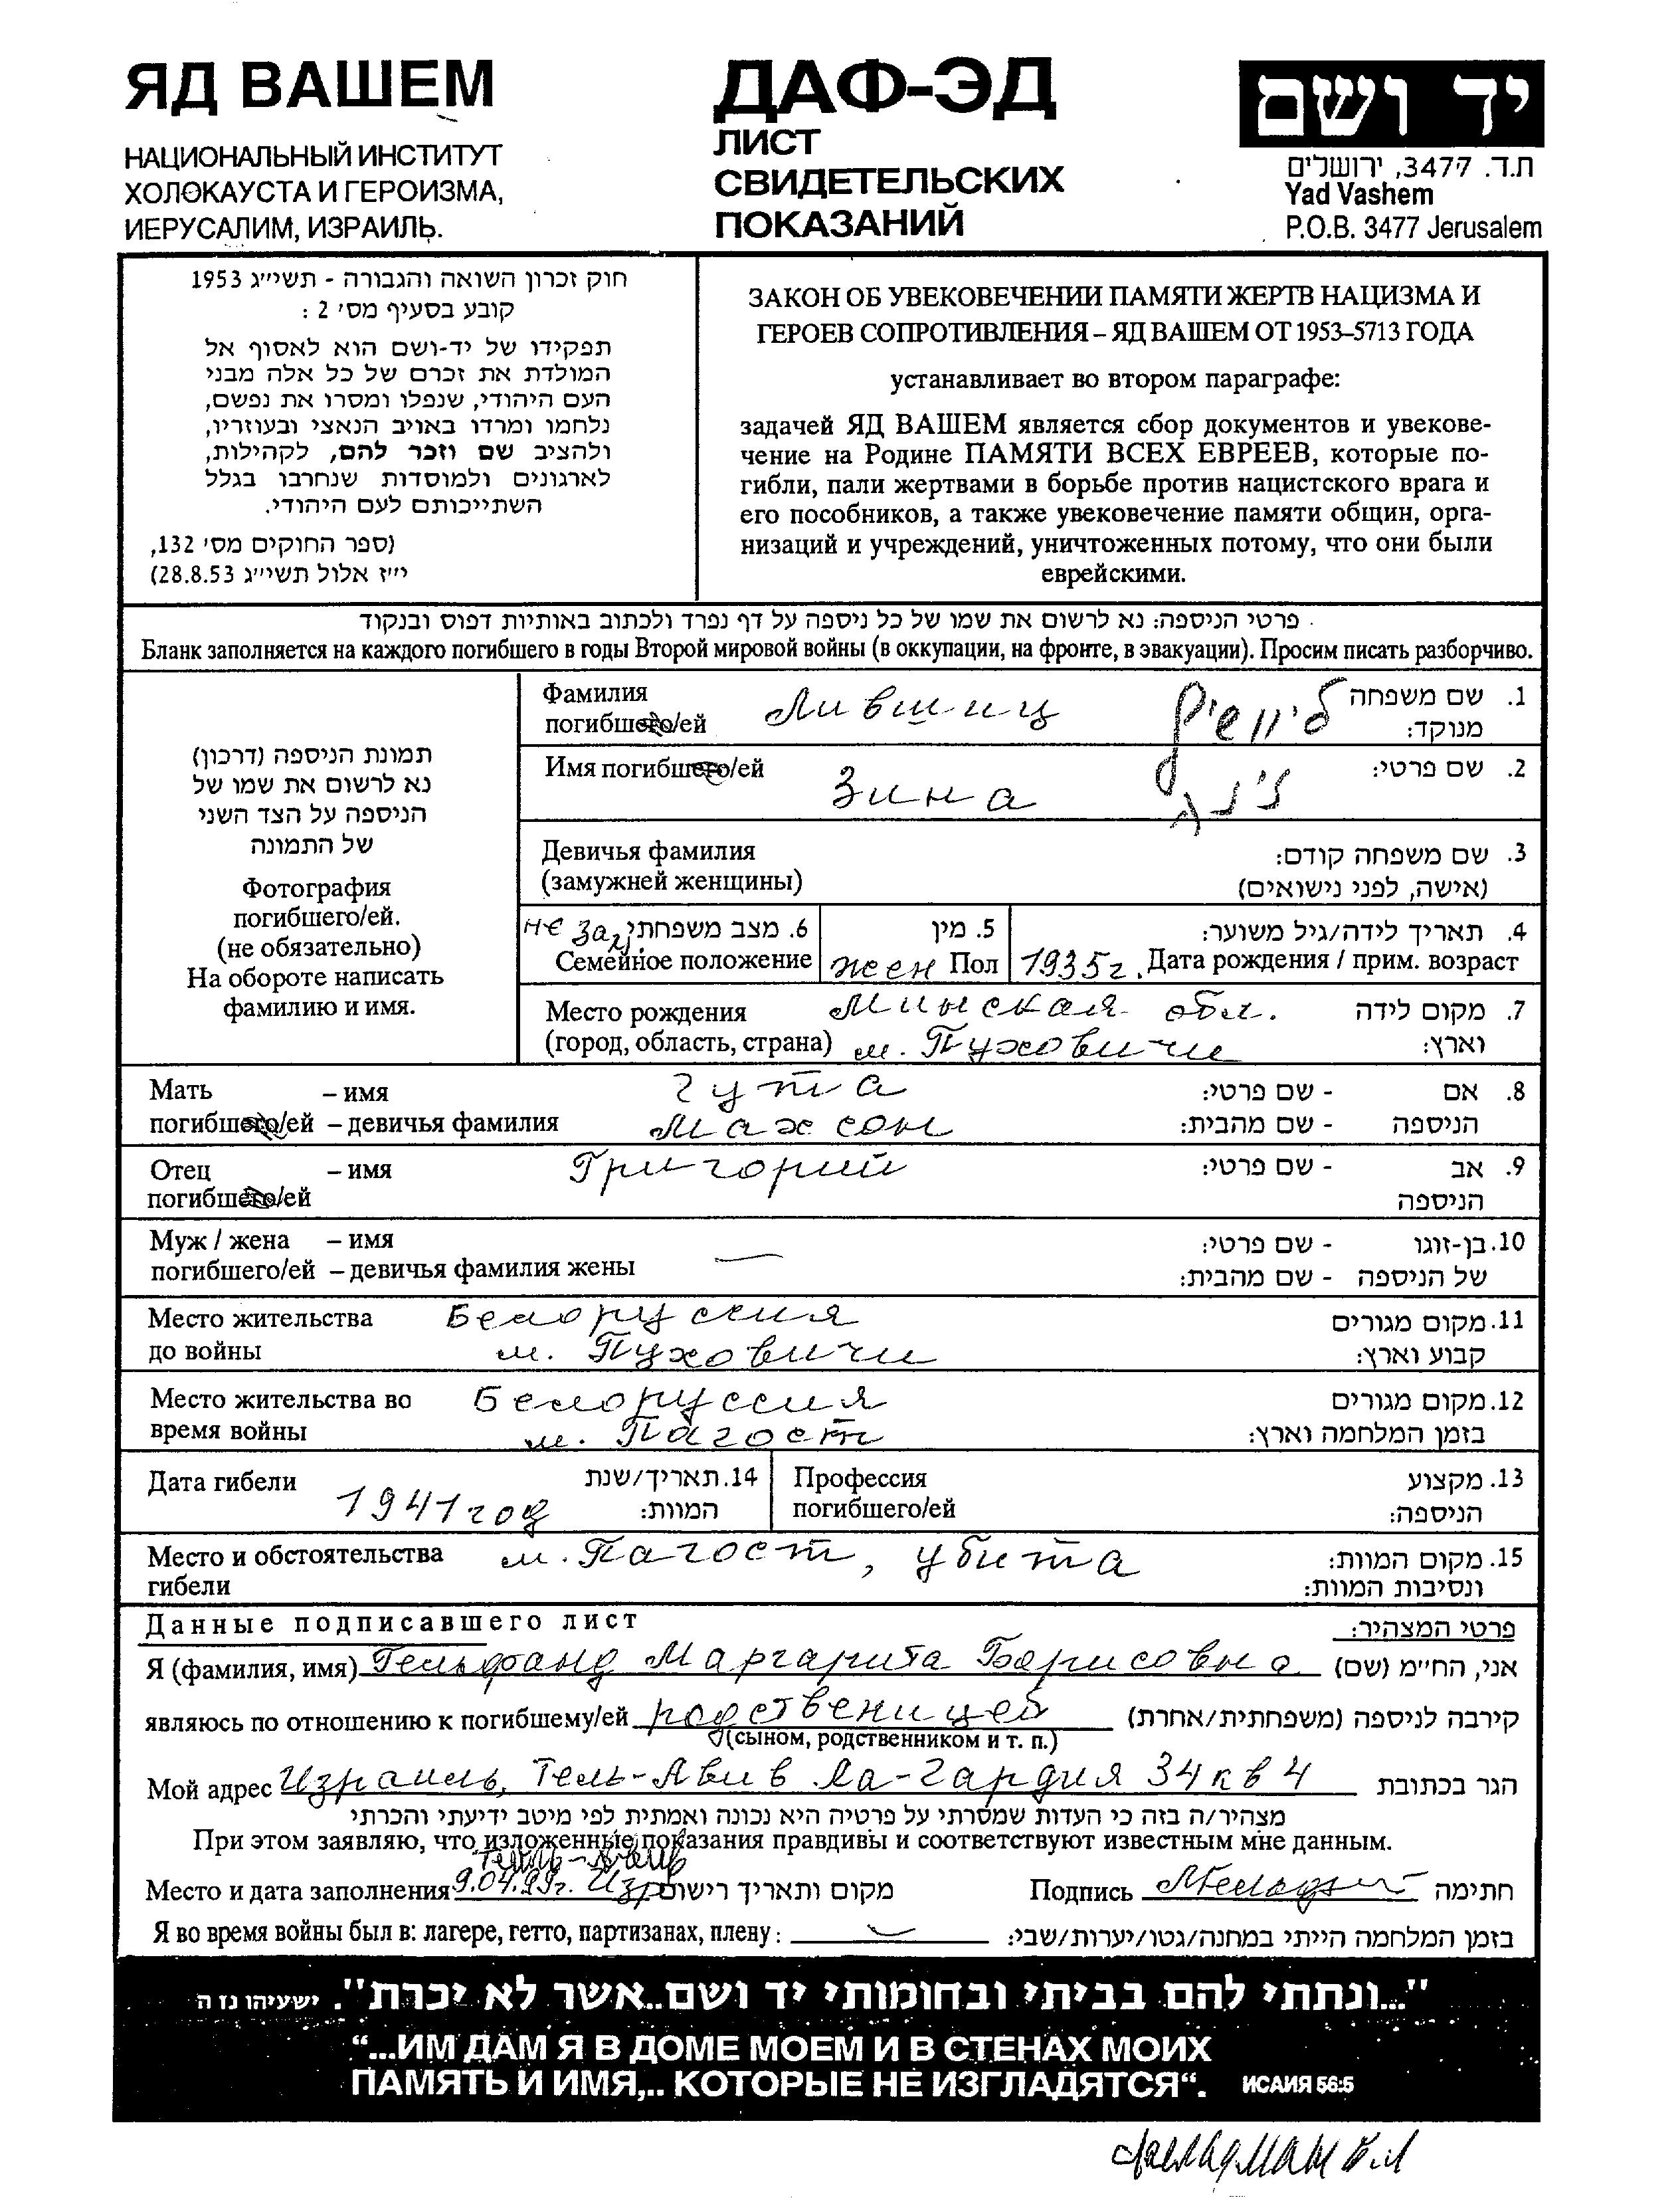 ЯД ВАШЕМ
НАЦИОНАЛЬНЫЙ ИНСТИТУТ
ХОЛОКАУСТА И ГЕРОИЗМА,
ИЕРУСАЛИМ, ИЗРАИЛЬ.
ДАФ-ЭД
ЛИСТ
СВИДЕТЕЛЬСКИХ
ПОКАЗАНИЙ
יד ושם
ת.ד. 3477, ירושלים
Yad Vashem
P.O.B. 3477 Jerusalem
חוק זכרון השואה והגבורה - תשי״ג 1953
קובע בסעיף מס׳ 2 :
תפקידו של יד-ושם הוא לאסוף אל
המולדת את זכרם של כל אלה מבני
העם היהודי, שנפלו ומסרו את נפשם,
נלחמו ומרדו באויב הנאצי ובעוזריו,
ולהציב שם וזכר להם, לקהילות,
לארגונים ולמוסדות שנחרבו בגלל
השתייכותם לעם היהודי.
(ספר החוקים מס׳ 132,
י״ז אלול תשי״ג 28.8.53)
ЗАКОН ОБ УВЕКОВЕЧЕНИИ ПАМЯТИ ЖЕРТВ НАЦИЗМА И
ГЕРОЕВ СОПРОТИВЛЕНИЯ – ЯД ВАШЕМ ОТ 1953–5713 ГОДА
устанавливает во втором параграфе:
задачей ЯД ВАШЕМ является сбор документов и увекове-
чение на Родине ПАМЯТИ ВСЕХ ЕВРЕЕВ, которые по-
гибли, пали жертвами в борьбе против нацистского врага и
его пособников, а также увековечение памяти общин, орга-
низаций и учреждений, уничтоженных потому, что они были
еврейскими.
פרטי הניספה: נא לרשום את שמו של כל ניספה על דף נפרד ולכתוב באותיות דפוס ובנקוד
Бланк заполняется на каждого погибшего в годы Второй мировой войны (в оккупации, на фронте, в эвакуации). Просим писать разборчиво.
תמונת הניספה (דרכון)
נא לרשום את שמו של
הניספה על הצד השני
של התמונה
Фотография
погибшего/ей.
(не обязательно)
На обороте написать
фамилию и имя.
Фамилия Лившиц ליוושיץ 1. שם משפחה
погибшего/ей מנוקד:
Имя погибшего/ей Зина זינה 2. שם פרטי:
Девичья фамилия 3. שם משפחה קודם:
(замужней женщины) (אישה, לפני נישואים)
не зам. 6. מצב משפחתי 5. מין 4. תאריך לידה/גיל משוער:
Семейное положение жен Пол 1935г. Дата рождения / прим. возраст
Место рождения Минская обл. 7. מקום לידה
(город, область, страна) м. Пуховичи וארץ:
Мать – имя Гута 8. אם - שם פרטי:
погибшего/ей – девичья фамилия Махсон הניספה - שם מהבית:
Отец – имя Григорий 9. אב - שם פרטי:
погибшего/ей הניספה
Муж / жена – имя 10. בן-זוגו - שם פרטי:
погибшего/ей – девичья фамилия жены — של הניספה - שם מהבית:
Место жительства Белоруссия 11. מקום מגורים
до войны м. Пуховичи קבוע וארץ:
Место жительства во Белоруссия 12. מקום מגורים
время войны м. Пагост בזמן המלחמה וארץ:
Дата гибели 1941 год 14. תאריך/שנת Профессия 13. מקצוע
המוות: погибшего/ей הניספה:
Место и обстоятельства м. Пагост, убита 15. מקום המוות:
гибели ונסיבות המוות:
Данные подписавшего лист פרטי המצהיר:
Я (фамилия, имя) Гельфанд Маргарита Борисовна אני, הח״מ (שם)
являюсь по отношению к погибшему/ей родственицей קירבה לניספה (משפחתית/אחרת)
(сыном, родственником и т. п.)
Мой адрес Израиль, Тель-Авив Ла-Гардия 34 кв 4 הגר בכתובת
מצהיר/ה בזה כי העדות שמסרתי על פרטיה היא נכונה ואמתית לפי מיטב ידיעתי והכרתי
При этом заявляю, что изложенные показания правдивы и соответствуют известным мне данным.
Тель-Авив
Место и дата заполнения 9.04.99г. Изр מקום ותאריך רישום Подпись חתימה
Я во время войны был в: лагере, гетто, партизанах, плену: — בזמן המלחמה הייתי במחנה/גטו/יערות/שבי:
"...ונתתי להם בביתי ובחומותי יד ושם..אשר לא יכרת". ישעיהו נז ה
“...ИМ ДАМ Я В ДОМЕ МОЕМ И В СТЕНАХ МОИХ
ПАМЯТЬ И ИМЯ,.. КОТОРЫЕ НЕ ИЗГЛАДЯТСЯ“. ИСАИЯ 56:5